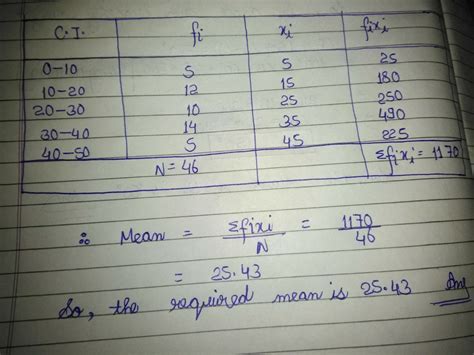 C.I. fi xi fixi
0-10 5 5 25
10-20 12 15 180
20-30 10 25 250
30-40 14 35 490
40-50 5 45 225
N=46 Σfixi = 1170
∴ Mean = Σfixi/N = 1170/46
= 25.43
So, the required mean is 25.43 Ans